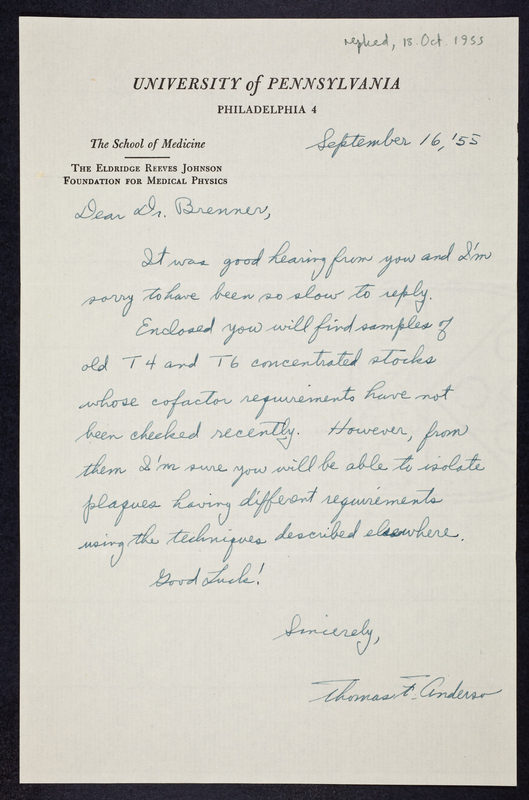 replied, 18 Oct. 1955
UNIVERSITY of PENNSYLVANIA
PHILADELPHIA 4
The School of Medicine
September 16, '55
THE ELDRIDGE REEVES JOHNSON
FOUNDATION FOR MEDICAL PHYSICS
Dear Dr. Brenner,
It was good hearing from you and I'm
sorry to have been so slow to reply.
Enclosed you will find samples of
old T4 and T6 concentrated stocks
whose cofactor requirements have not
been checked recently. However, from
them I'm sure you will be able to isolate
plaques having different requirements
using the techniques described elsewhere.
Good Luck!
Sincerely,
Thomas F. Anderso